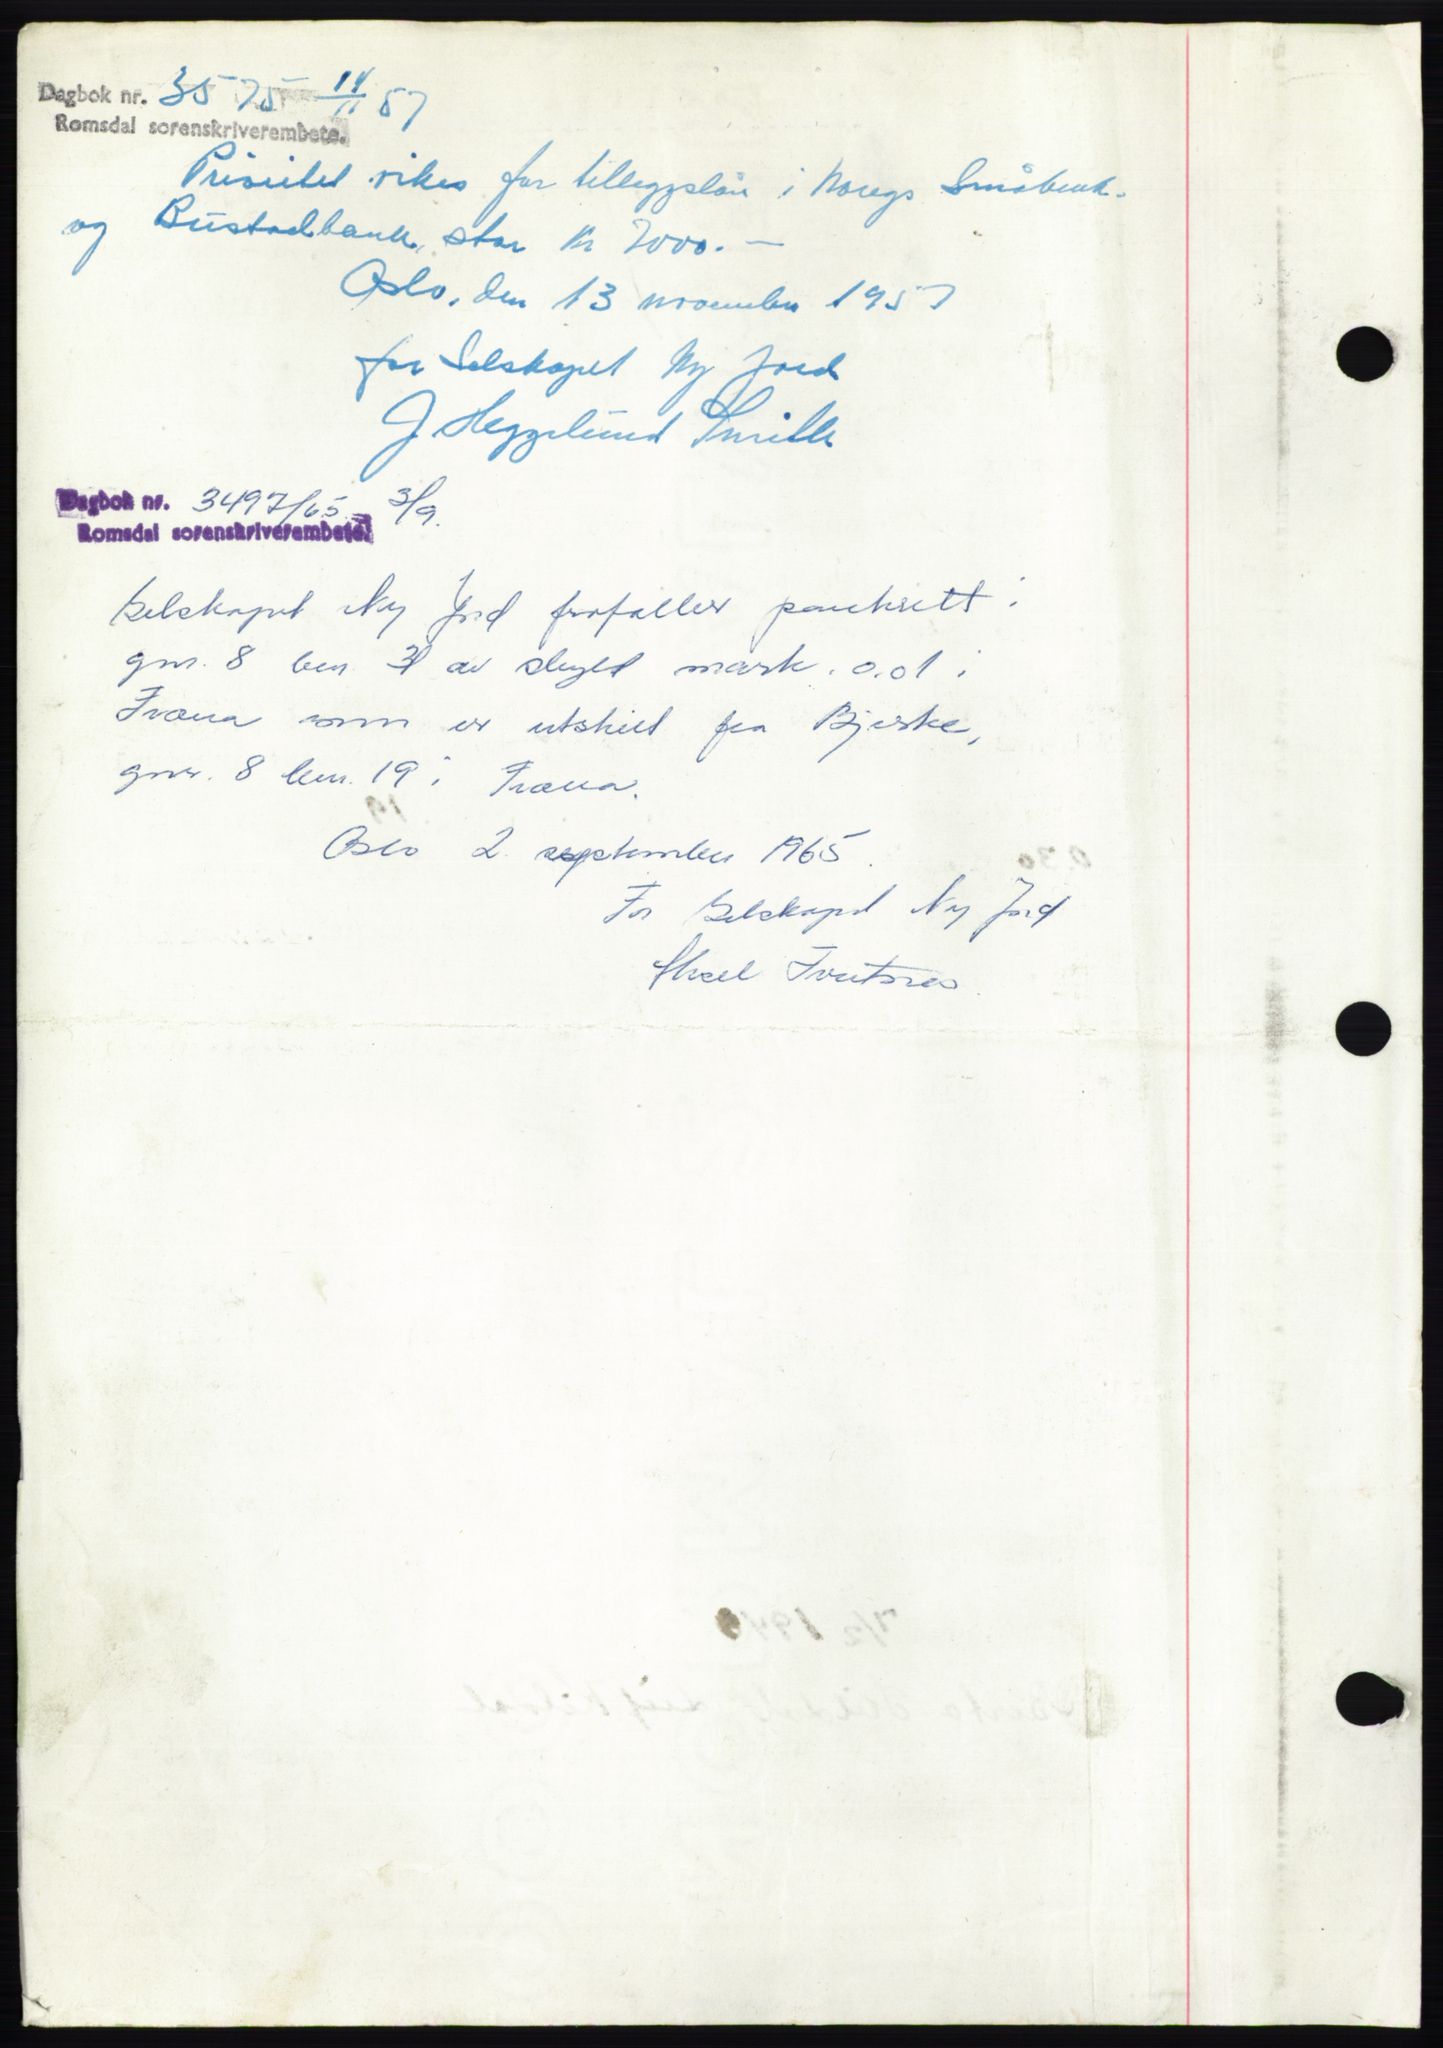 Dagbok nr. 3575 14/11 57
Romsdal sorenskriverembete.
Prioritet vikes for tilleggslån i Noregs Småbruk-
og Bustadbank, stor kr 7000.-
Oslo, den 13 november 1957
for Selskapet Ny Jord
J. Heggelund Smith
Dagbok nr. 3497/65 - 3/9.
Romsdal sorenskriverembete.
Selskapet Ny Jord frafaller panterett i
gnr. 8 bnr. 31 av skyld mark. 0.01 i
Fræna som er utskilt fra Bjerke,
gnr. 8 bnr. 19 i Fræna.
Oslo 2. september 1965.
For Selskapet Ny Jord
Aksel